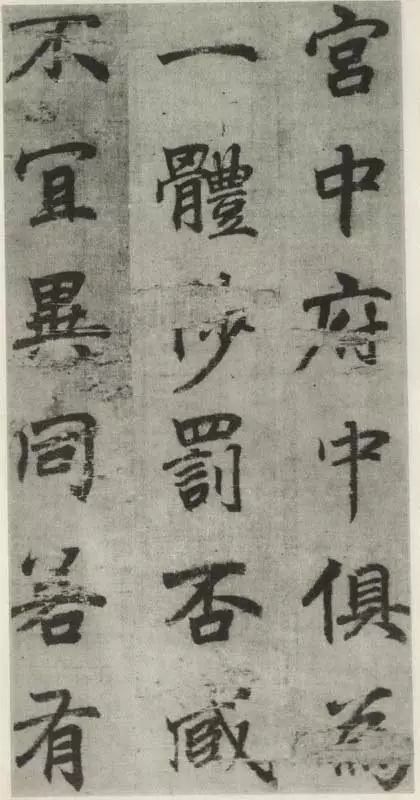 宮中府中俱為
一體陟罰否臧
不宜異同若有